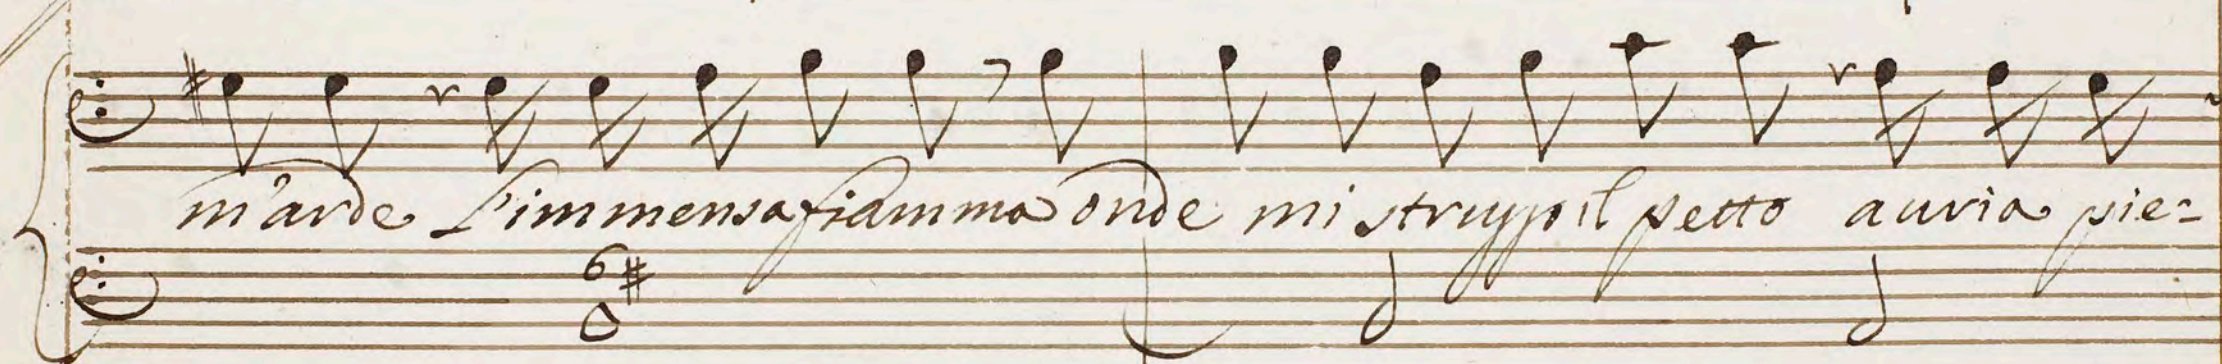 m'arde L'immensa fiamma onde mi struggo il petto auria pie-
6#